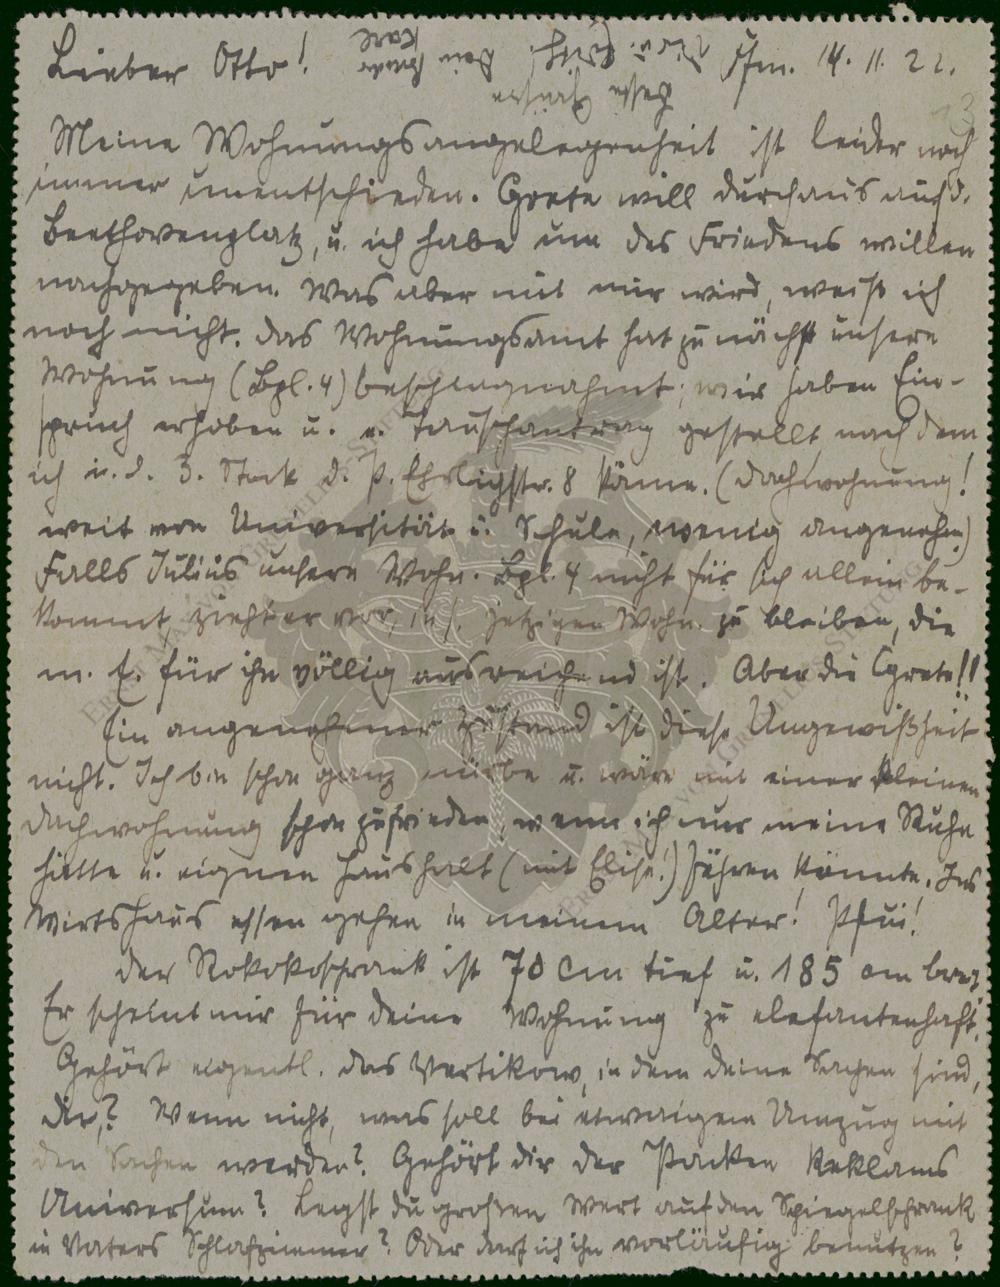 Lieber Otto! Ffm. 14. 11. 22.
Meine Wohnungsangelegenheit ist leider noch
immer unentschieden. Grete will durchaus auf d.
Beethovenplatz, u. ich habe um des Friedens willen
nachgegeben. Was aber mit mir wird, weiß ich
noch nicht. Das Wohnungsamt hat zunächst unsere
Wohnung (Bpl. 4) beschlagnahmt; wir haben Ein-
spruch erhoben u. e. Tauschantrag gestellt, nach dem
ich i. d. 3. Stock d. P. Ehrlichstr. 8 käme. (Dachwohnung!
weit von Universität u. Schule, wenig angenehm)
Falls Julius unsere Wohn. Bpl. 4 nicht für sich allein be-
kommt, zieht er vor, in s. jetzigen Wohn. zu bleiben, die
m. E. für ihn völlig ausreichend ist. Aber die Grete!!
Ein angenehmer Zustand ist diese Ungewißheit
nicht. Ich bin schon ganz mürbe u. wäre mit einer kleinen
Dachwohnung schon zufrieden, wenn ich nur meine Ruhe
hätte u. eignen Haushalt (mit Elise!) führen könnte. Ins
Wirtshaus essen gehen in meinem Alter! Pfui!
Der Rokokoschrank ist 70 cm tief u. 185 cm breit.
Er scheint mir für deine Wohnung zu elefantenhaft.
Gehört eigentl. das Vertikow, in dem deine Sachen sind,
dir? Wenn nicht, was soll bei etwaigem Umzug mit
den Sachen werden? Gehört dir der Packen Reklams
Universum? Legst du großen Wert auf den Spiegelschrank
in Vaters Schlafzimmer? Oder darf ich ihn vorläufig benutzen?
Dein Bruder
Karl
ERNST MAX VON GRUNELIUS-STIFTUNG